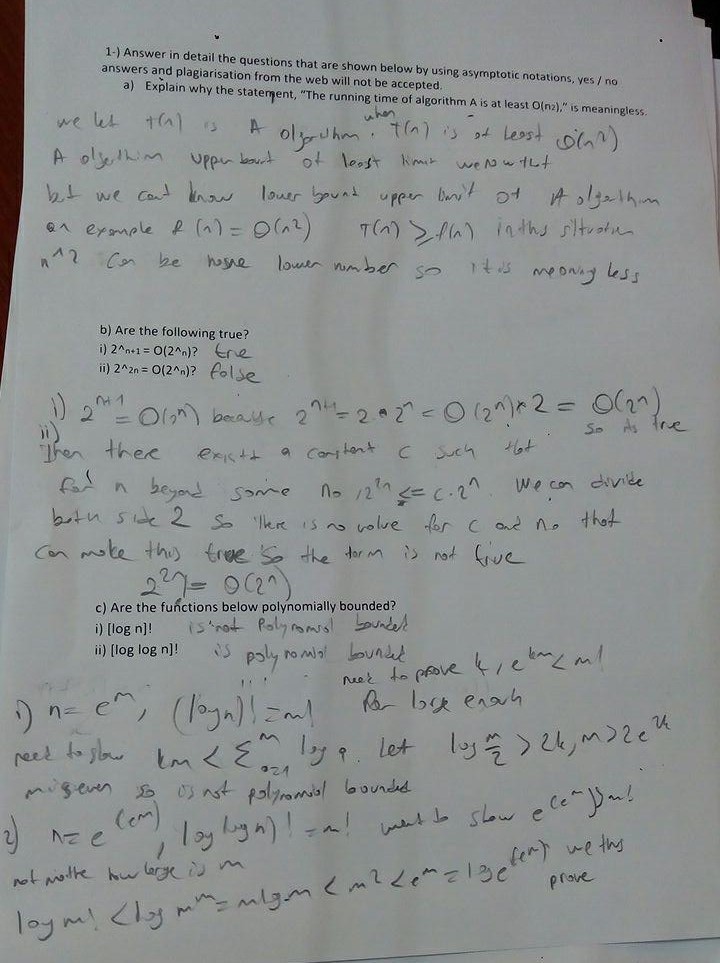 1-) Answer in detail the questions that are shown below by using asymptotic notations, yes / no
answers and plagiarisation from the web will not be accepted.
a) Explain why the statement, "The running time of algorithm A is at least O(n2)," is meaningless.
when
we let T(n) is A algorithm. T(n) is at least O(n²)
A algorithm upper bount of least limit we now that
but we cant know lower bound upper limit of A algorithm
an example f(n) = O(n²) T(n) ≥ f(n) in this situation
n^2 can be lower number so it is meaning less
b) Are the following true?
i) 2^n+1 = O(2^n)? true
ii) 2^2n = O(2^n)? false
i) 2^n+1 = O(2^n) because 2^n+1 = 2 * 2^n = O(2^n) * 2 = O(2^n)
so its true
ii)
Then there exists a constant c such that
for n beyond some no, 2^2n <= c.2^n. We can divide
both side 2 so there is no value for c and no that
can make this true so the term is not true
2^2n = O(2^n)
c) Are the functions below polynomially bounded?
i) [log n]! is not Polynomial bounded
ii) [log log n]! is polynomial bounded
need to prove k, e^km < m!
For large enough
i) n = e^m, (logn)! = m!
need to show km < Σ log a. Let log m/2 > 2k, m > 2e^2k
so is not polynomial bounded
2) n = e^(e^m), log logn)! = m! want to show e^(e^m) > m!
not matter how large is m
log m! < log m^m = mlgm < m² < e^m = loge^(e^m) we this
prove